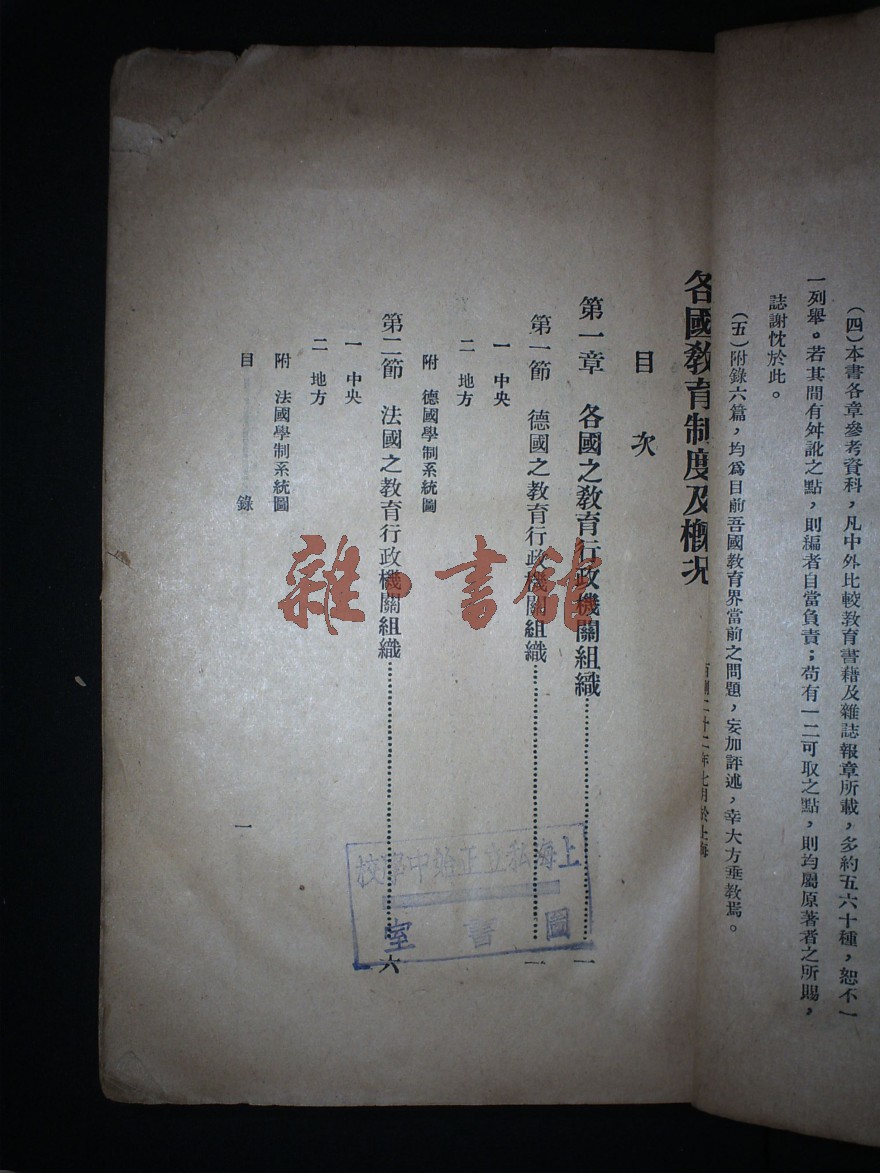 （四）本書各章參考資料，凡中外比較教育書藉及雜誌報章所載，多約五六十種，恕不一
一列舉。若其間有舛訛之點，則編者自當負責；苟有一二可取之點，則均屬原著者之所賜，
誌謝忱於此。
（五）附錄六篇，均爲目前吾國教育界當前之問題，妄加評述，幸大方垂教焉。
二十二年七月於上海
各國教育制度及概况
目次
第一章 各國之教育行政機關組織……一
第一節 德國之教育行政機關組織……一
一 中央
二 地方
附 德國學制系統圖
第二節 法國之教育行政機關組織……六
一 中央
二 地方
附 法國學制系統圖
目 錄
一
上海私立正始中學校
圖書室
雜·書館